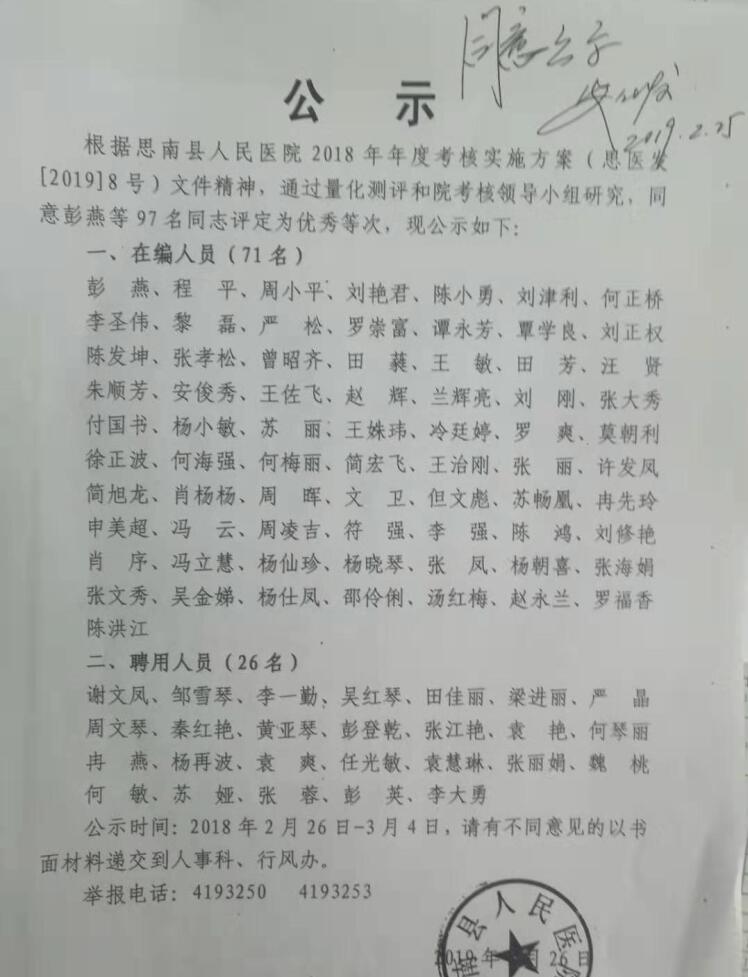 同意公示
2019.2.25
公 示
根据思南县人民医院 2018 年年度考核实施方案（思医发
[2019]8 号）文件精神，通过量化测评和院考核领导小组研究，同
意彭燕等 97 名同志评定为优秀等次，现公示如下：
一、在编人员（71 名）
彭 燕、程 平、周小平、刘艳君、陈小勇、刘津利、何正桥
李圣伟、黎 磊、严 松、罗崇富、谭永芳、覃学良、刘正权
陈发坤、张孝松、曾昭齐、田 蕤、王 敏、田 芳、汪 贤
朱顺芳、安俊秀、王佐飞、赵 辉、兰辉亮、刘 刚、张大秀
付国书、杨小敏、苏 丽、王姝玮、冷廷婷、罗 爽、莫朝利
徐正波、何海强、何梅丽、简宏飞、王治刚、张 丽、许发凤
简旭龙、肖杨杨、周 晖、文 卫、但文彪、苏畅凰、冉先玲
申美超、冯 云、周凌吉、符 强、李 强、陈 鸿、刘修艳
肖 序、冯立慧、杨仙珍、杨晓琴、张 凤、杨朝喜、张海娟
张文秀、吴金娣、杨仕凤、邵伶俐、汤红梅、赵永兰、罗福香
陈洪江
二、聘用人员（26 名）
谢文凤、邹雪琴、李一勤、吴红琴、田佳丽、梁进丽、严 晶
周文琴、秦红艳、黄亚琴、彭登乾、张江艳、袁 艳、何琴丽
冉 燕、杨再波、袁 爽、任光敏、袁慧琳、张丽娟、魏 桃
何 敏、苏 娅、张 蓉、彭 英、李大勇
公示时间：2018 年 2 月 26 日-3 月 4 日，请有不同意见的以书
面材料递交到人事科、行风办。
举报电话：4193250 4193253
南县人民医院
2019 年 月 26 日